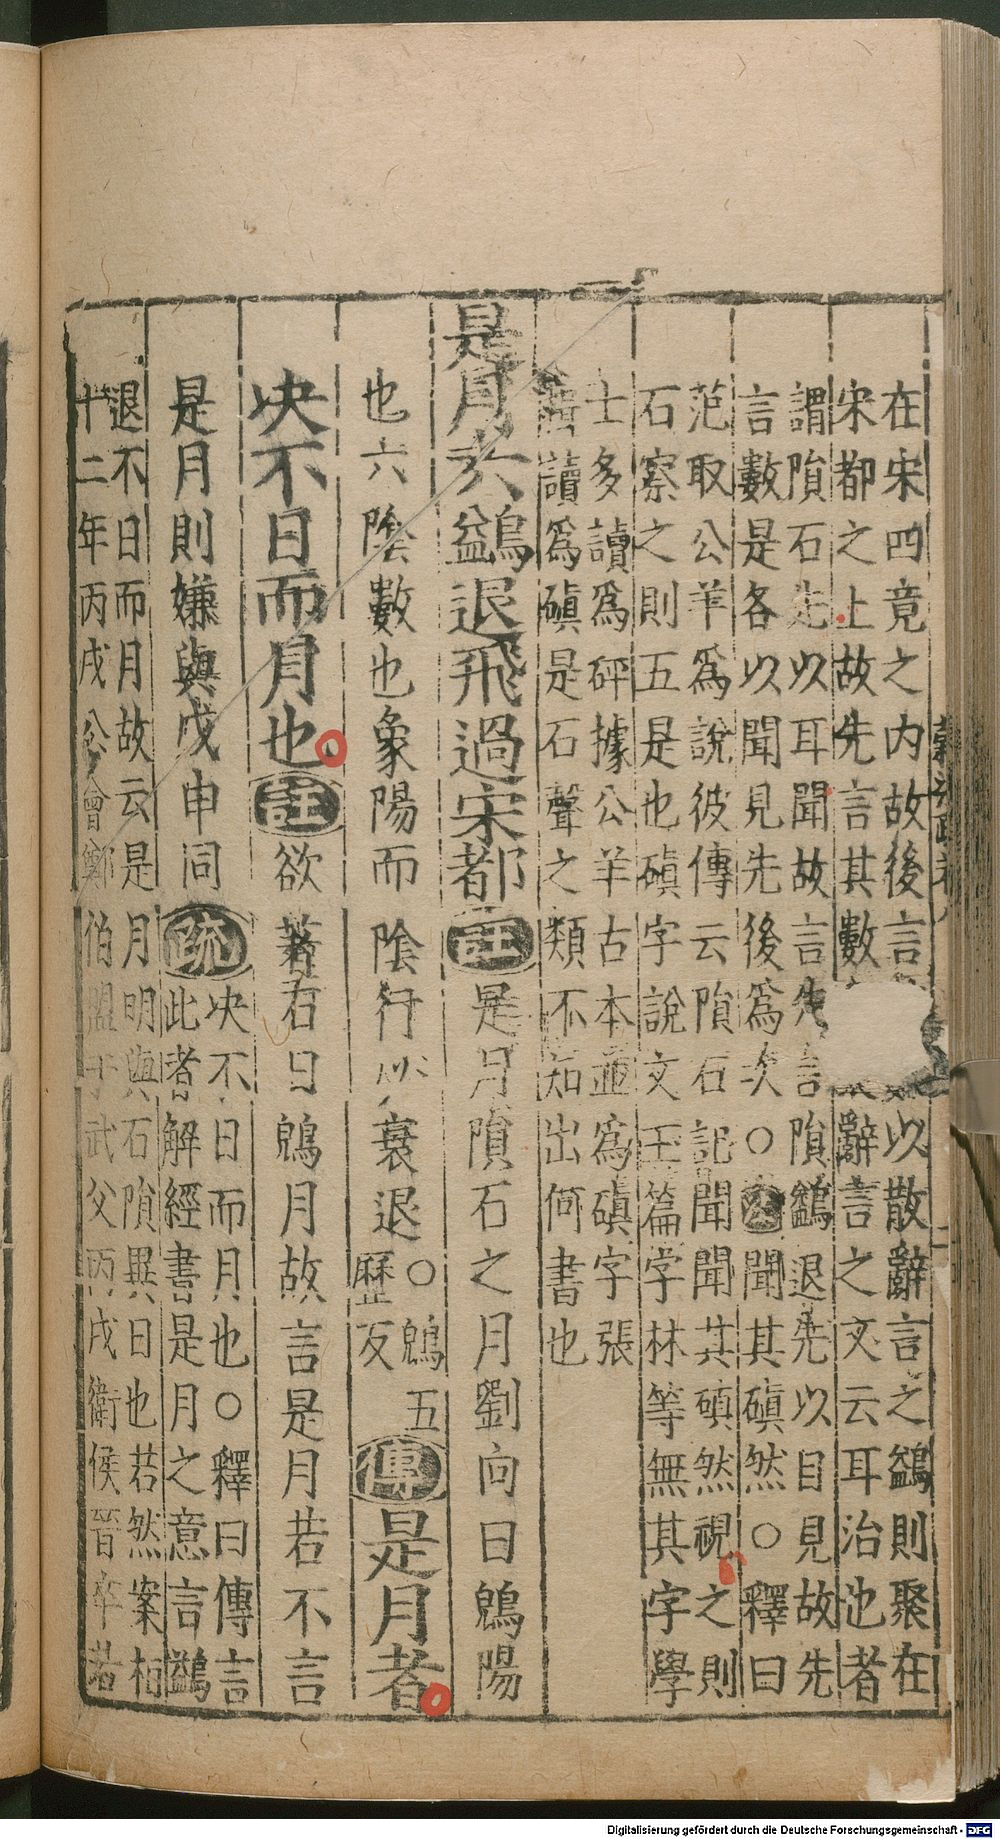 在宋四竟之内故後言
以散辭言之鷁則聚在
宋都之上故先言其數
辭言之文云耳治也者
謂隕石先以耳聞故言先言隕鷁退先以目見故先
言數是各以聞見先後爲次○公聞其磌然○釋曰
范取公羊爲說彼傳云隕石記聞聞其磌然視之則
石察之則五是也磌字說文玉篇字林等無其字學
士多讀爲砰據公羊古本並爲磌字張
讀爲磌是石聲之類不知出何書也
是月六鷁退飛過宋都註是月隕石之月劉向曰鶂陽
也六陰數也象陽而陰行必衰退○鶂五
歷反
傳是月者
决不日而月也註欲著石日鶂月故言是月若不言
是月則嫌與戊申同疏决不日而月也○釋曰傳言
此者解經書是月之意言鷁
退不日而月故云是月明與石隕異日也若然案桓
十二年丙戌公會鄭伯盟于武父丙戌衛侯晉卒若
二
Digitalisierung gefördert durch die Deutsche Forschungsgemeinschaft - DFG